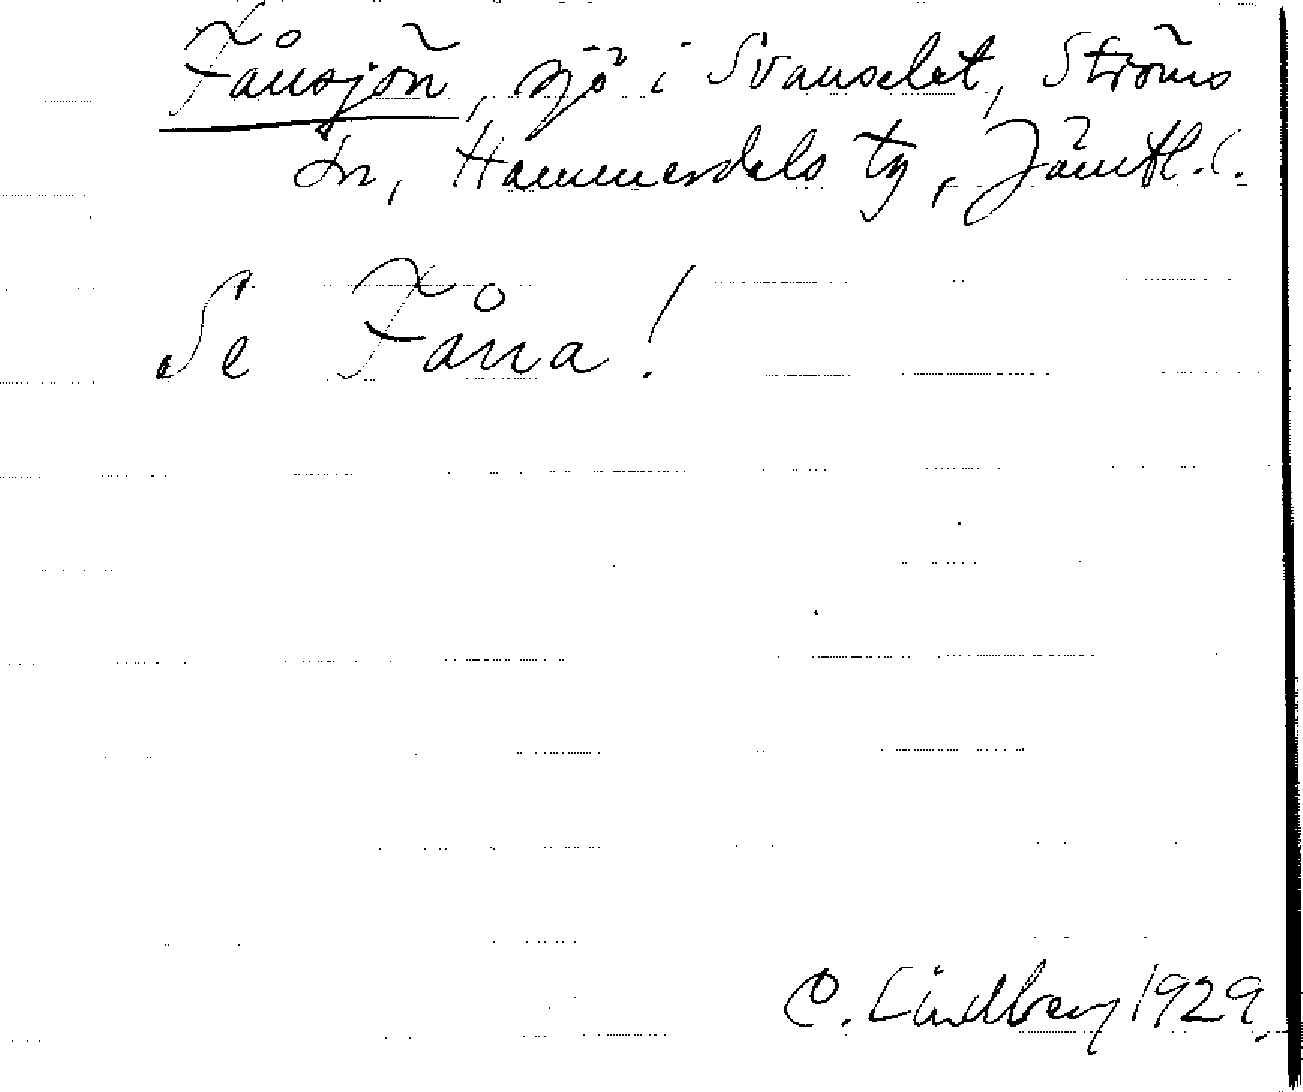 Fånsjön, sjö i Svanselet, Ströms
sn, Hammerdals tg, Jämtl. l.
Se Fåna!
C. Lindberg 1929.